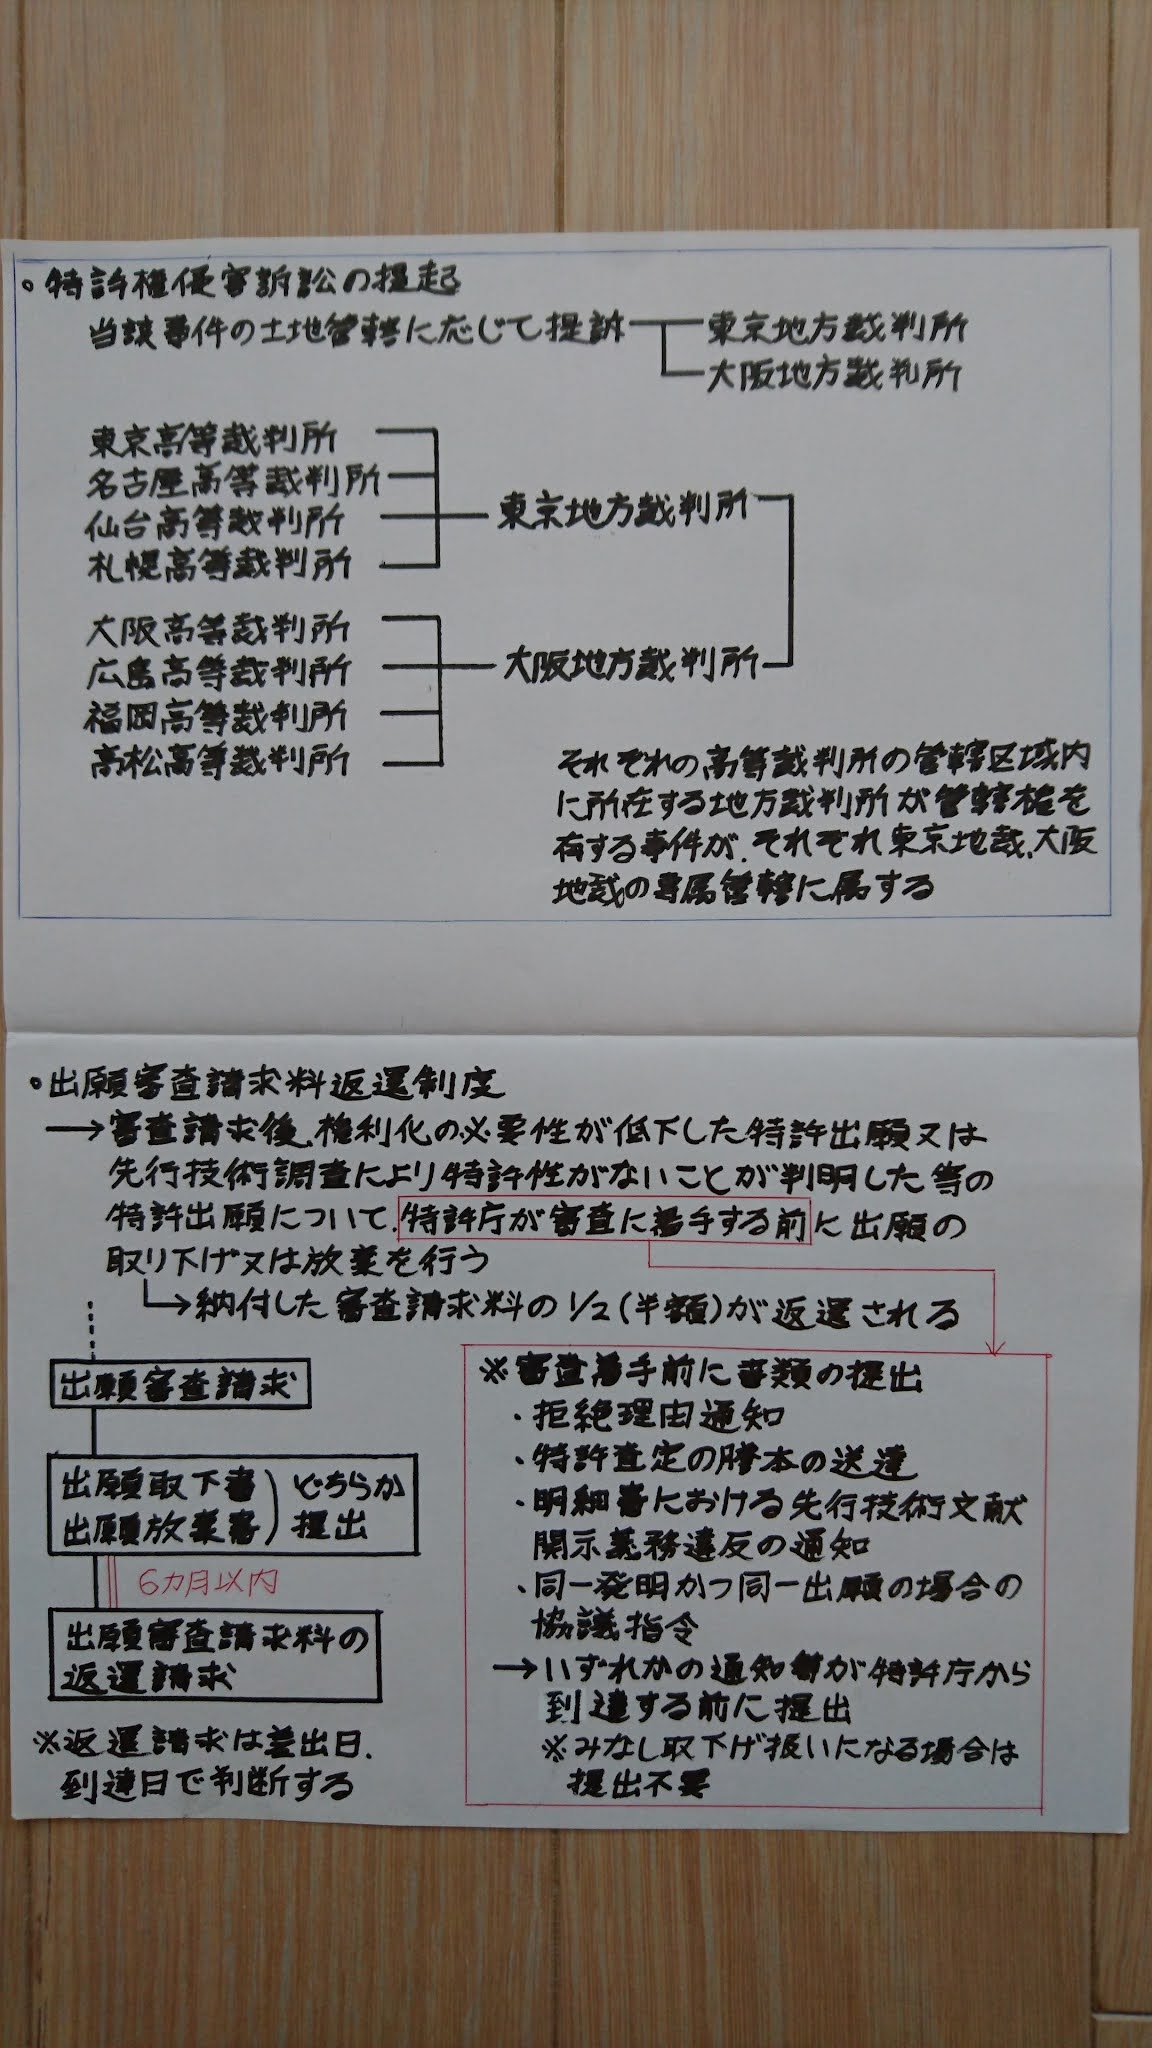 。特許権侵害訴訟の提起
当該事件の土地管轄に応じて提訴
東京地方裁判所
大阪地方裁判所
東京高等裁判所
名古屋高等裁判所
仙台高等裁判所
札幌高等裁判所
東京地方裁判所
大阪高等裁判所
広島高等裁判所
福岡高等裁判所
高松高等裁判所
大阪地方裁判所
それぞれの高等裁判所の管轄区域内
に所在する地方裁判所が管轄権を
有する事件が、それぞれ東京地裁、大阪
地裁の専属管轄に属する
。出願審査請求料返還制度
→審査請求後、権利化の必要性が低下した特許出願又は
先行技術調査により特許性がないことが判明した等の
特許出願について、特許庁が審査に着手する前に出願の
取り下げ又は放棄を行う
→納付した審査請求料の1/2(半額)が返還される
出願審査請求
出願取下書
出願放棄書
)どちらか
提出
6カ月以内
出願審査請求料の
返還請求
※返還請求は差出日、
到達日で判断する
※審査着手前に書類の提出
・拒絶理由通知
・特許査定の謄本の送達
・明細書における先行技術文献
開示義務違反の通知
・同一発明かつ同一出願の場合の
協議指令
→いずれかの通知等が特許庁から
到達する前に提出
※みなし取下げ扱いになる場合は
提出不要